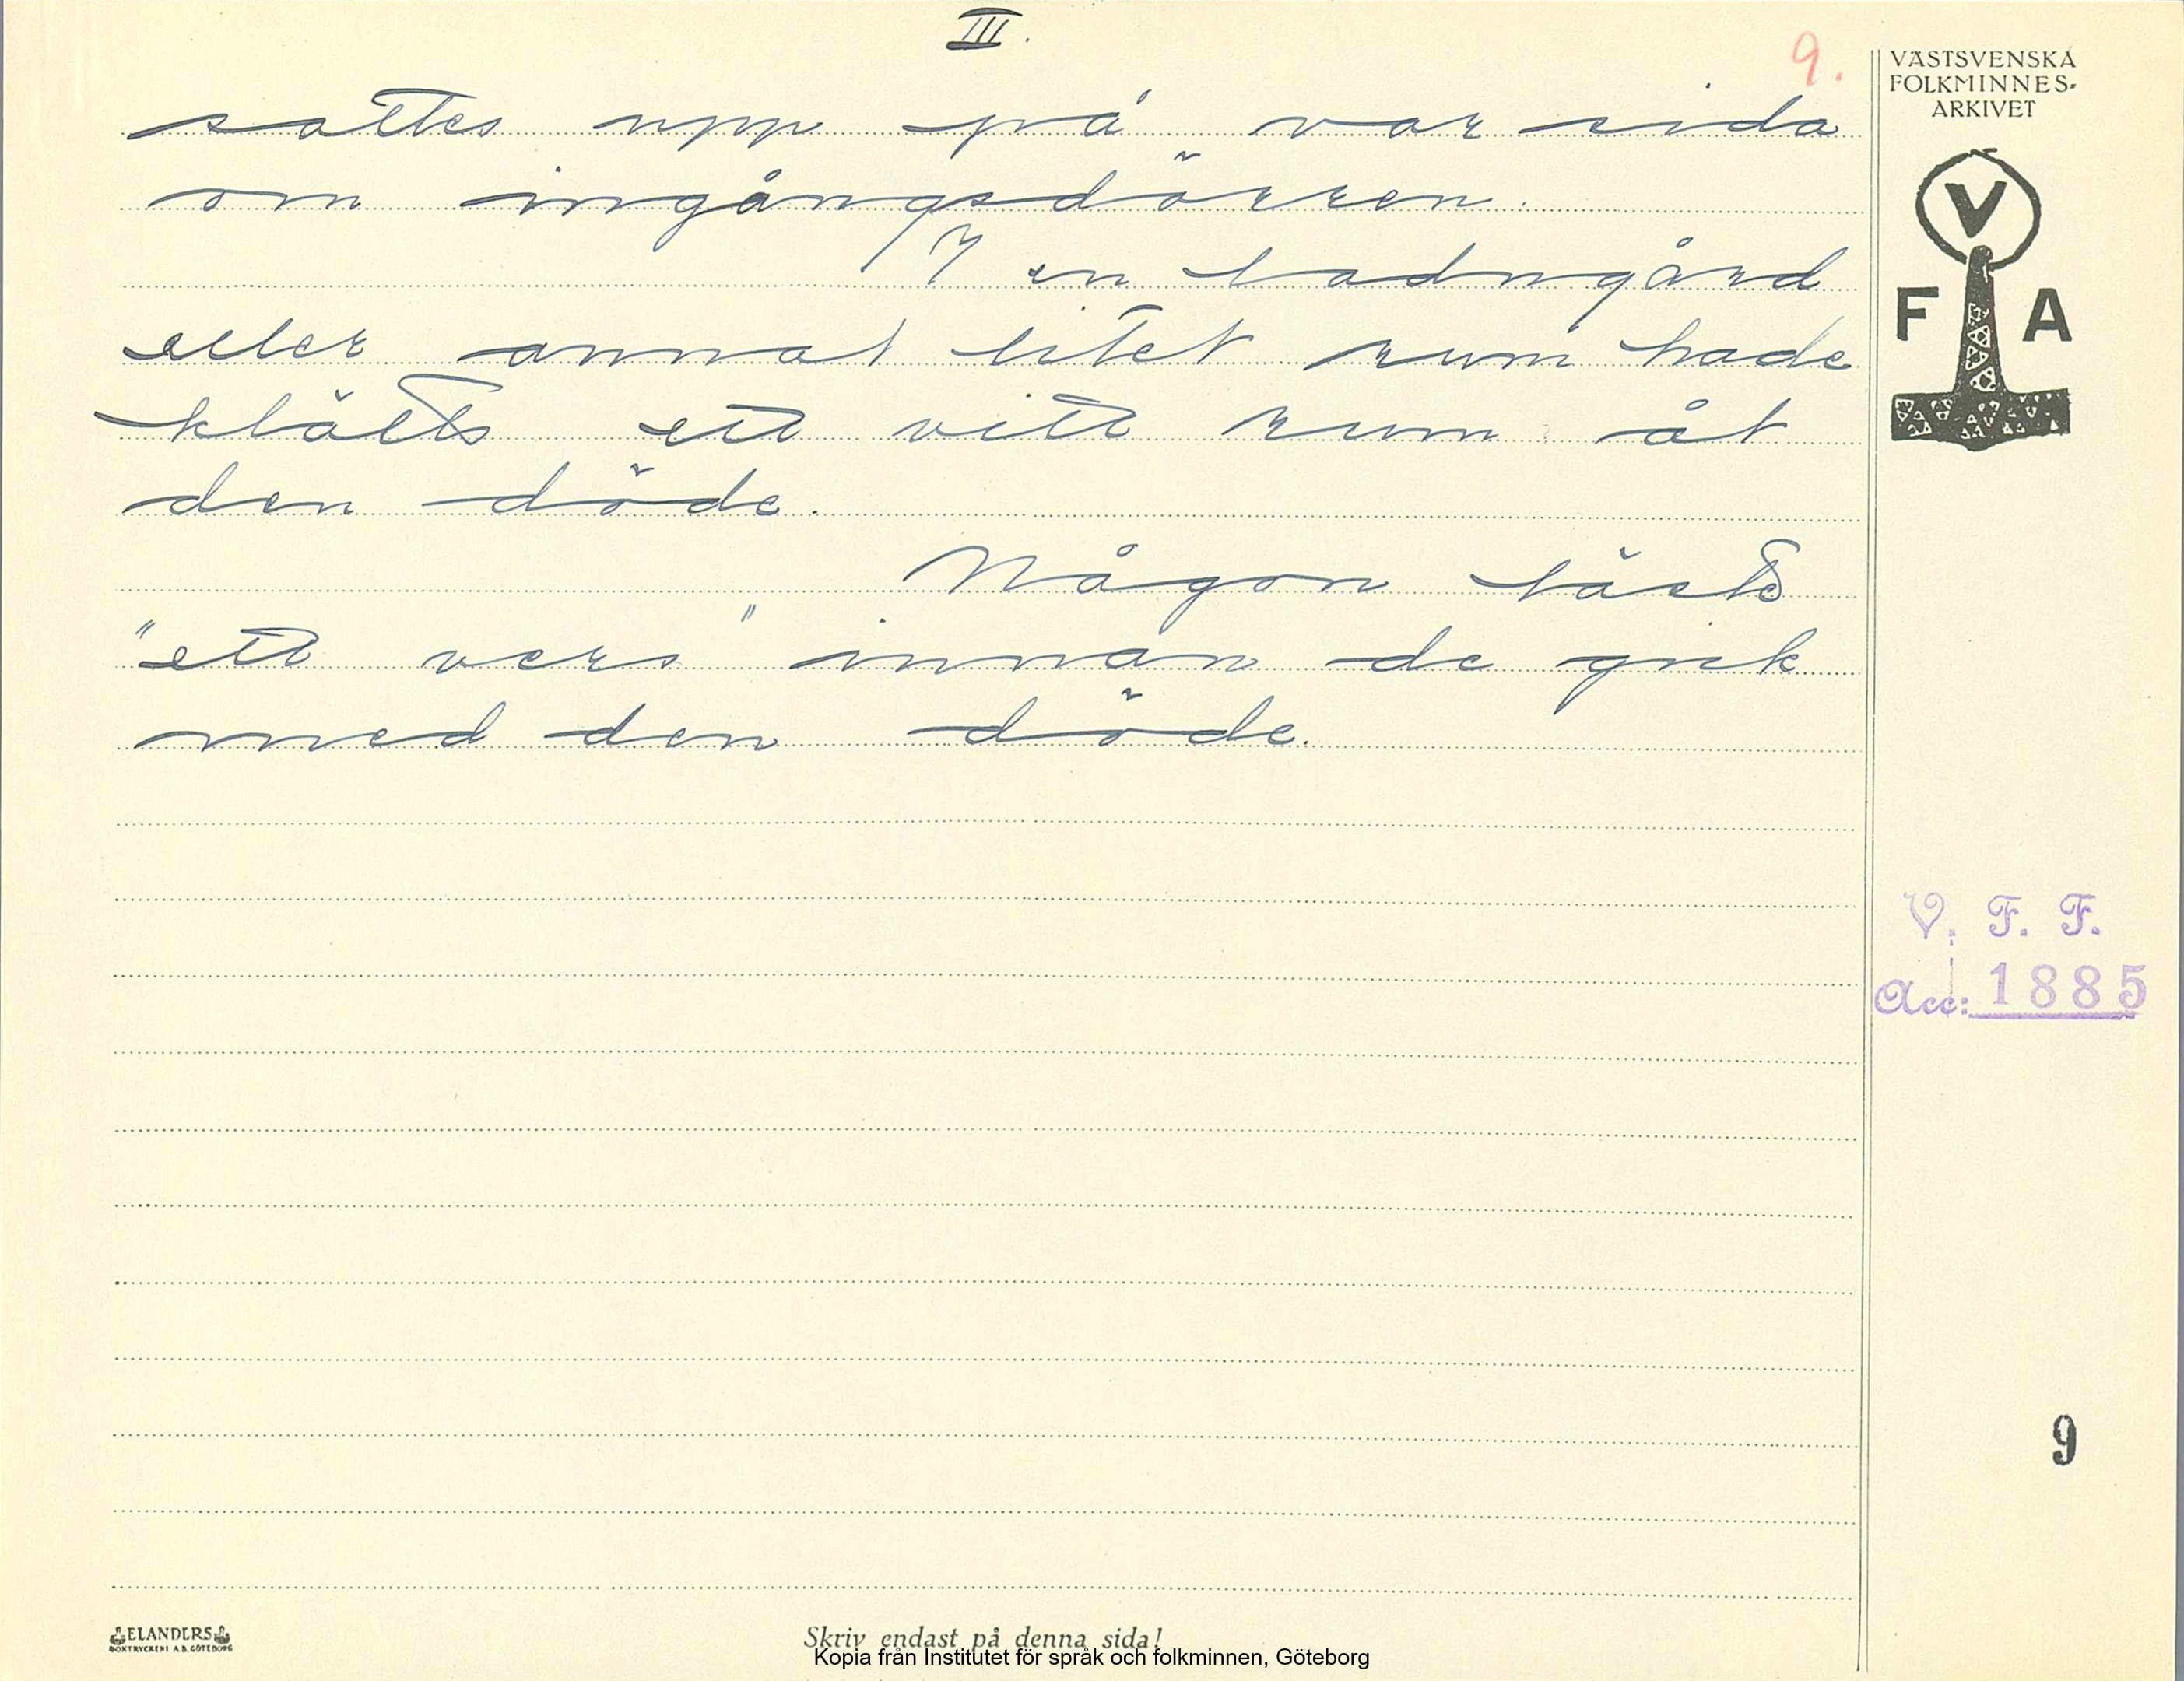 III.
9.
VÄSTSVENSKA
FOLKMINNES-
ARKIVET
V
F A
sattes upp på var sida
om ingångsdörren.
I en ladugård
eller annat litet rum hade
klätts ett vitt rum åt
den döde.
Någon läste
"ett vers" innan de gick
med den döde.
V. F. F.
Acc: 1885
9
ELANDERS
BOKTRYCKERI A.B. GÖTEBORG
Skriv endast på denna sida!
Kopia från Institutet för språk och folkminnen, Göteborg